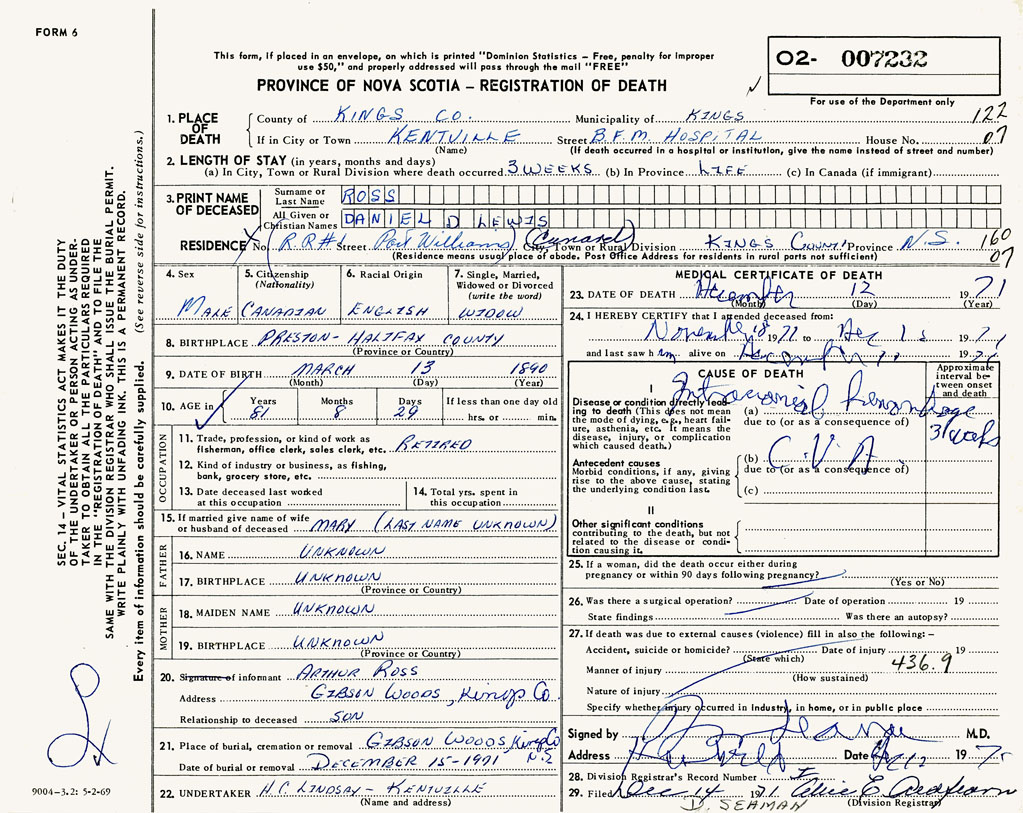 FORM 6
This form, if placed in an envelope, on which is printed "Dominion Statistics – Free, penalty for improper
use $50," and properly addressed will pass through the mail "FREE"
PROVINCE OF NOVA SCOTIA – REGISTRATION OF DEATH
O2- 007232
For use of the Department only
1. PLACE OF DEATH County of KINGS CO. Municipality of KINGS 122
If in City or Town KENTVILLE Street B.F.M. HOSPITAL House No. 07
(Name) (If death occurred in a hospital or institution, give the name instead of street and number)
2. LENGTH OF STAY (in years, months and days)
(a) In City, Town or Rural Division where death occurred 3 WEEKS (b) In Province LIFE (c) In Canada (if immigrant)
3. PRINT NAME OF DECEASED Surname or Last Name ROSS
All Given or Christian Names DANIEL D LEWIS
RESIDENCE No. R.R#1 Street Port Williams (Cunard) City, Town or Rural Division KINGS COUNTY Province N.S. 160
(Residence means usual place of abode. Post Office Address for residents in rural parts not sufficient) 07
4. Sex MALE
5. Citizenship (Nationality) CANADIAN
6. Racial Origin ENGLISH
7. Single, Married, Widowed or Divorced (write the word) WIDOW
8. BIRTHPLACE PRESTON – HALIFAX COUNTY
(Province or Country)
9. DATE OF BIRTH MARCH 13 1890
(Month) (Day) (Year)
10. AGE in Years 81 Months 8 Days 29 If less than one day old
hrs. or min.
OCCUPATION
11. Trade, profession, or kind of work as
fisherman, office clerk, sales clerk, etc. RETIRED
12. Kind of industry or business, as fishing,
bank, grocery store, etc.
13. Date deceased last worked
at this occupation
14. Total yrs. spent in
this occupation
15. If married give name of wife
or husband of deceased MARY (LAST NAME UNKNOWN)
FATHER
16. NAME UNKNOWN
17. BIRTHPLACE UNKNOWN
(Province or Country)
MOTHER
18. MAIDEN NAME UNKNOWN
19. BIRTHPLACE UNKNOWN
(Province or Country)
20. Signature of informant ARTHUR ROSS
Address GIBSON WOODS, Kings Co.
Relationship to deceased SON
21. Place of burial, cremation or removal GIBSON WOODS, Kings Co
N.S
Date of burial or removal DECEMBER 15-1971
22. UNDERTAKER H.C. LINDSAY – KENTVILLE
(Name and address)
MEDICAL CERTIFICATE OF DEATH
23. DATE OF DEATH December 12 1971
(Month) (Day) (Year)
24. I HEREBY CERTIFY that I attended deceased from:
November 18 1971 to Dec 19 71
and last saw him alive on December 11 19
CAUSE OF DEATH
Approximate interval between onset and death
I
Disease or condition directly leading to death (This does not mean
the mode of dying, e.g., heart failure,
asthenia, etc. It means the
disease, injury, or complication
which caused death.)
(a) Intracranial hemorrhage 3 weeks
due to (or as a consequence of)
Antecedent causes
Morbid conditions, if any, giving
rise to the above cause, stating
the underlying condition last.
(b) C.V.A.
due to (or as a consequence of)
(c)
II
Other significant conditions
contributing to the death, but not
related to the disease or condition
causing it.
25. If a woman, did the death occur either during
pregnancy or within 90 days following pregnancy?
(Yes or No)
26. Was there a surgical operation? Date of operation 19
State findings Was there an autopsy?
27. If death was due to external causes (violence) fill in also the following:–
Accident, suicide or homicide? Date of injury 19
(State which) 436.9
Manner of injury
(How sustained)
Nature of injury
Specify whether injury occurred in industry, in home, or in public place
Signed by M.D.
Address Date Dec 12 19
28. Division Registrar's Record Number
29. Filed Dec 14 1971 E.
D. SEAMAN (Division Registrar)
SEC. 14 – VITAL STATISTICS ACT MAKES IT THE DUTY
OF THE UNDERTAKER OR PERSON ACTING AS UNDERTAKER
TO OBTAIN ALL THE PARTICULARS REQUIRED
IN THE "REGISTRATION OF DEATH" AND TO FILE THE
SAME WITH THE DIVISION REGISTRAR WHO SHALL ISSUE THE BURIAL PERMIT.
WRITE PLAINLY WITH UNFADING INK. THIS IS A PERMANENT RECORD.
Every item of information should be carefully supplied. (See reverse side for instructions.)
9004-3.2: 5-2-69